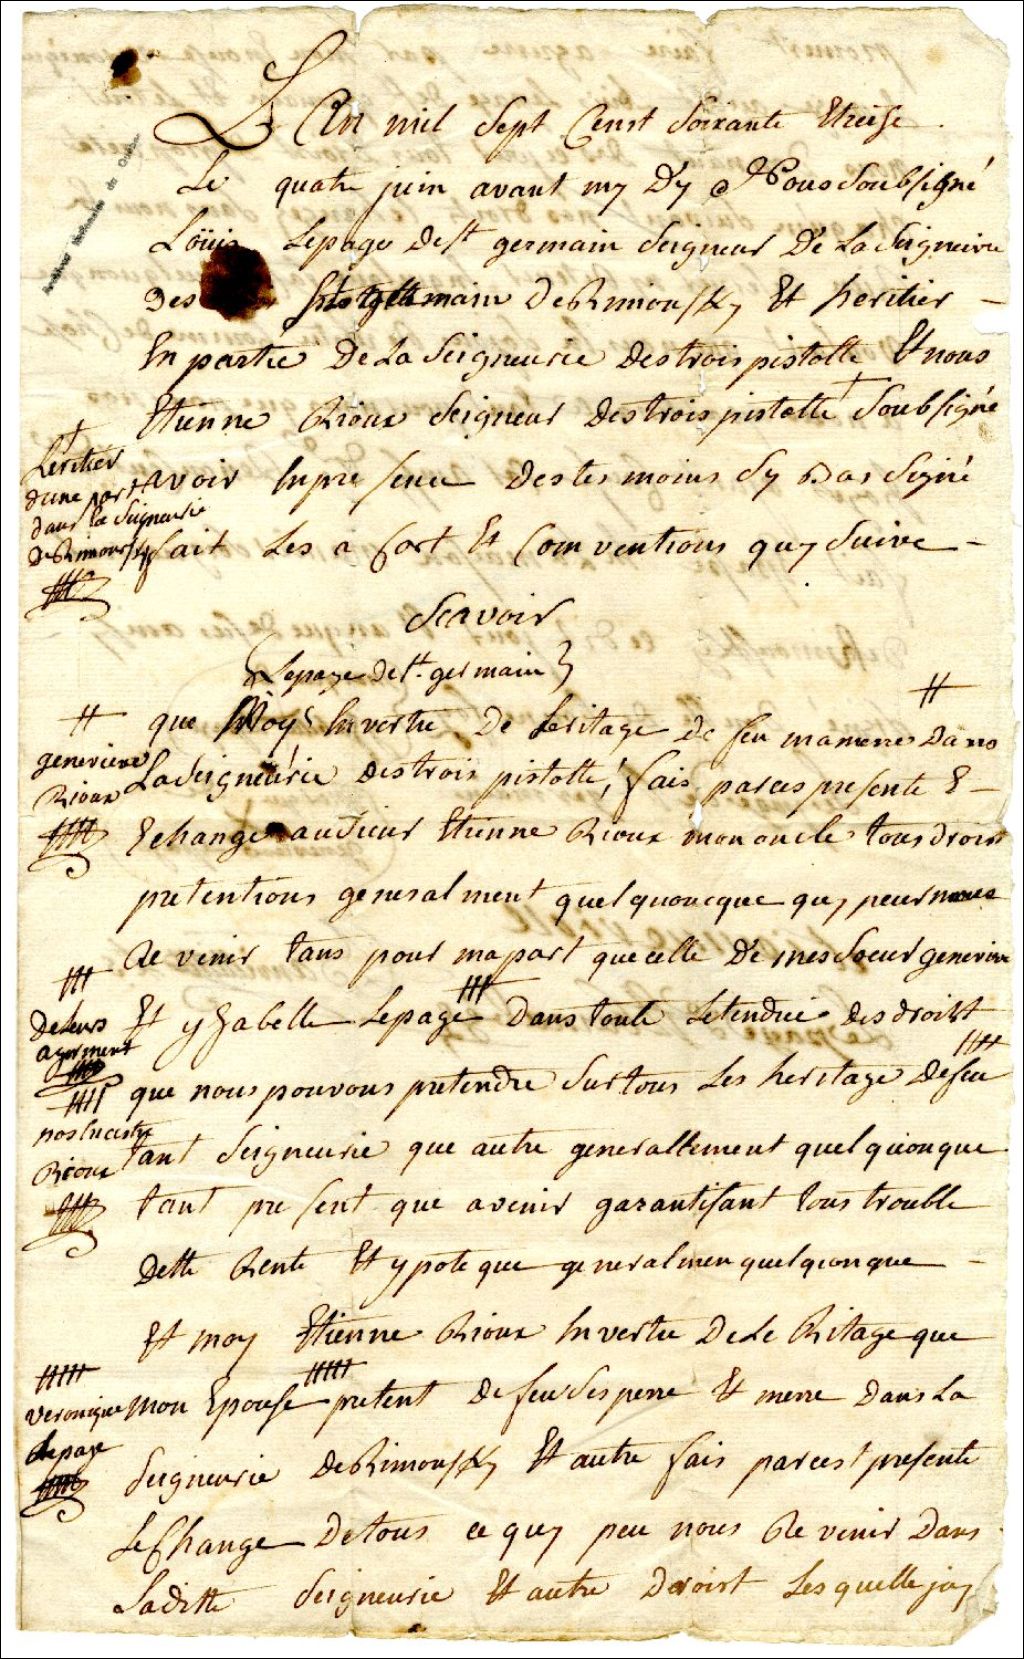 L An mil Sept Cent Soixante Etreise
Le quatre juin avant my D'y Nous Soubsigné
Loüis Lepage De st germain Seigneur De La Seigneirie
Des germain De Rimousky Et heritier
En partie De La Seigneurie Des trois pistolle Et nous
Etienne Rioux Seigneur Des trois pistolle + Soubsigné
+
heritier
dune part
dans la Seigneurie
De Rimousky
avoir En presence Des tes moins Sy Bas Signé
fait Les a Cort Et Comventions quy Suive
Scavoir
{Lepage De st. germain}
que Moy En vertue De heritage De feu ma mere # Dans
#
genevieve
Rioux
La Seigneurie Des trois pistolle, fais par ces presente E
Echange au Sieur Etienne Rioux mon oncle tous droits
pretentions generalment quelquoncque quy peus nous
Re venir tans pour ma part que celle De mes Soeur genevieve
Et ysabelle Lepage Dans toute Letendue des droitst
De Leurs
agerment
que nous pouvons pretendre Sur tous Les heritage De feu
nos Encestre
Rioux
tant Seigneurie que autre generallement quelquionque
tant present que avenir garantisant tous trouble
Dette Rente Et ypoteque generalmen quelqionque
Et moy Etienne Rioux En vertue De Le Ritage que
mon Epouse pretent de feu Ses perre Et merre Dans La
veronique
Lepage
Seigneurie De Rimousky Et autre fais par cest presente
LeChange De tous ce quy peu nous Re venir Dans
Laditte Seigneurie Et autre Deroist Les quelle jay